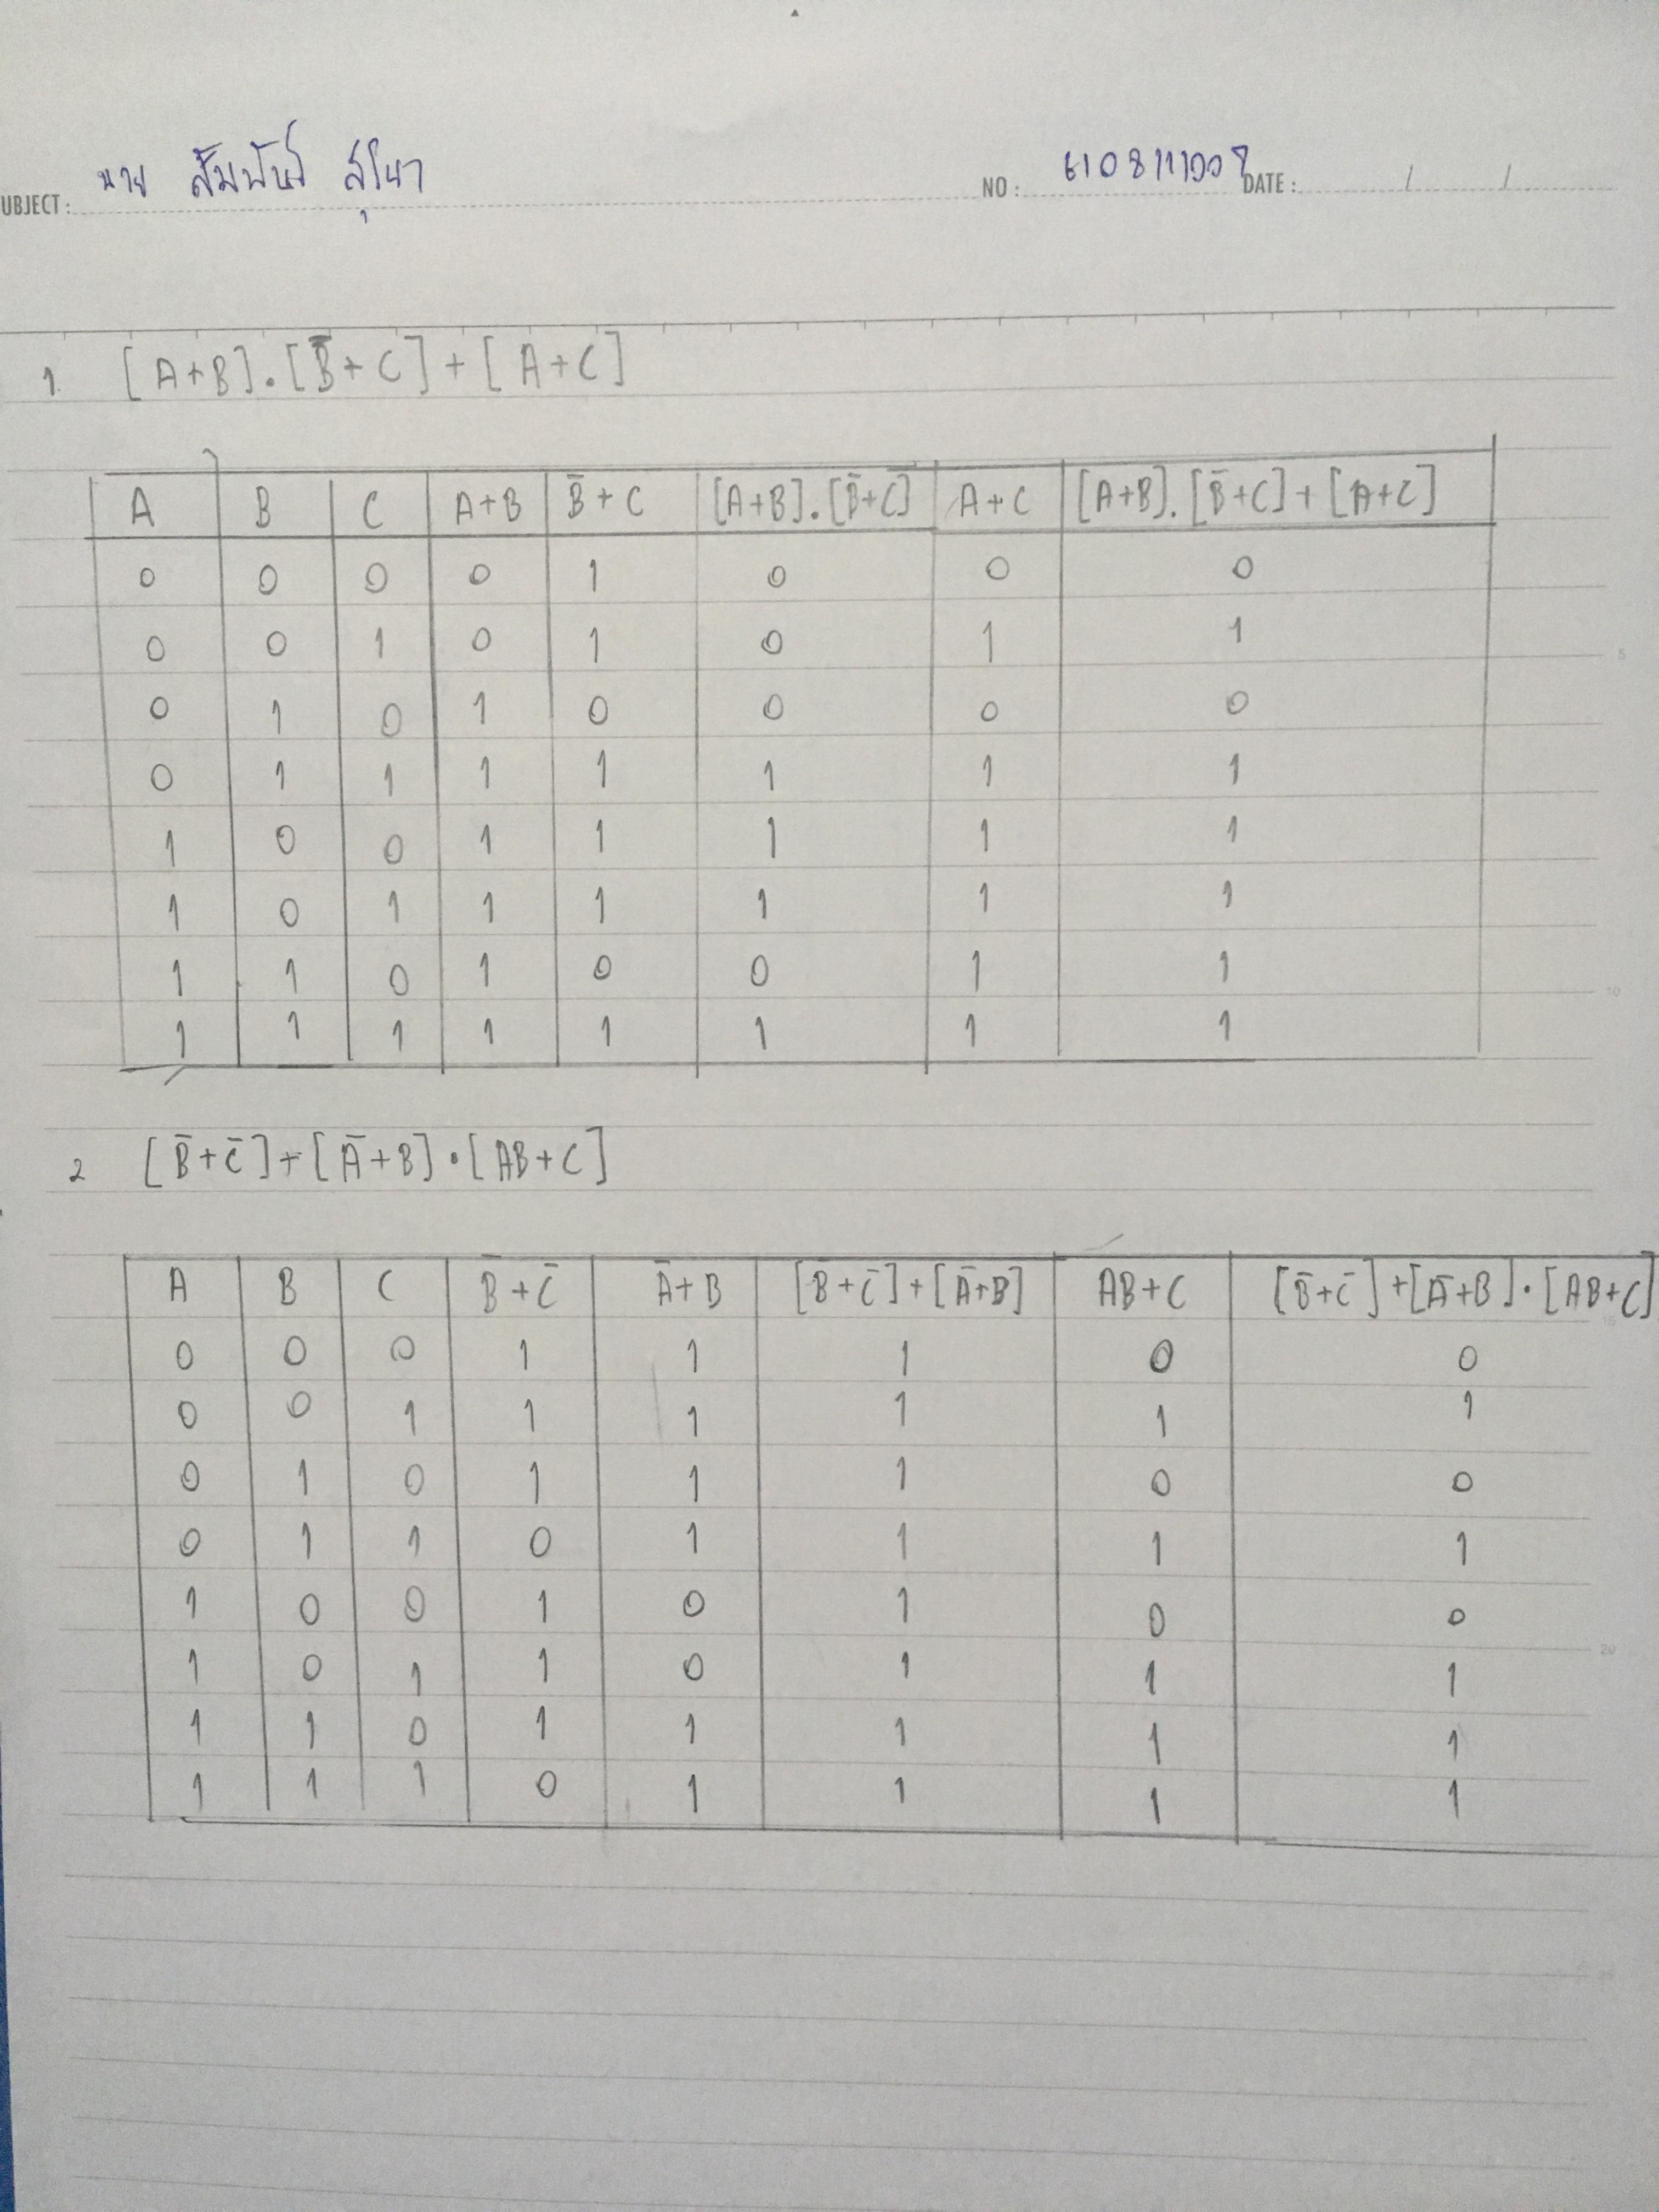 UBJECT : นาย สัมพันธ์ NO : DATE : / /
1. [A+B].[B̄+C]+[A+C]
A B C A+B B̄+C [A+B].[B̄+C] A+C [A+B].[B̄+C]+[A+C]
0 0 0 0 1 0 0 0
0 0 1 0 1 0 1 1
0 1 0 1 0 0 0 0
0 1 1 1 1 1 1 1
5
1 0 0 1 1 1 1 1
1 0 1 1 1 1 1 1
1 1 0 1 0 0 1 1
10
1 1 1 1 1 1 1 1
2 [B̄+C̄]+[Ā+B]·[AB+C]
A B C B̄+C̄ Ā+B [B̄+C̄]+[Ā+B] AB+C [B̄+C̄]+[Ā+B]·[AB+C]
15
0 0 0 1 1 1 0 0
0 0 1 1 1 1 1 1
0 1 0 1 1 1 0 0
0 1 1 0 1 1 1 1
1 0 0 1 0 1 0 0
20
1 0 1 1 0 1 1 1
1 1 0 1 1 1 1 1
1 1 1 0 1 1 1 1